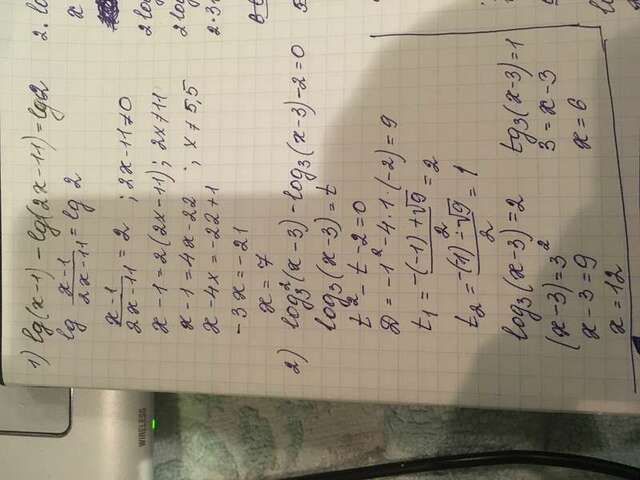 1) lg(x-1)-lg(2x-11)=lg2
lg x-1/2x-11 = lg 2
x-1/2x-11 = 2 ; 2x-11≠0
x-1=2(2x-11) ; 2x≠11
x-1=4x-22 ; x≠5,5
x-4x=-22+1
-3x=-21
x=7
2) log₃²(x-3)-log₃(x-3)-2=0
log₃(x-3)=t
t²-t-2=0
D=-1²-4·1·(-2)=9
t₁=-(-1)+√9/2=2
t₂=-(1)-√9/2=1
log₃(x-3)=2
(x-3)=3²
x-3=9
x=12
log₃(x-3)=1
3=x-3
x=6
2·lo
x
2log
2log
2·3
WIRELESS